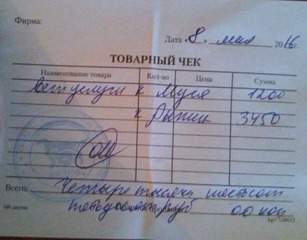 Фирма:
Дата «8» мая 2016г.
ТОВАРНЫЙ ЧЕК
Наименование товара Кол-во Цена Сумма
Ветуслуги к Муся 1200
к Рыжик 3450
Всего: Четыре тысячи шестьсот
пятьдесят руб 00 коп